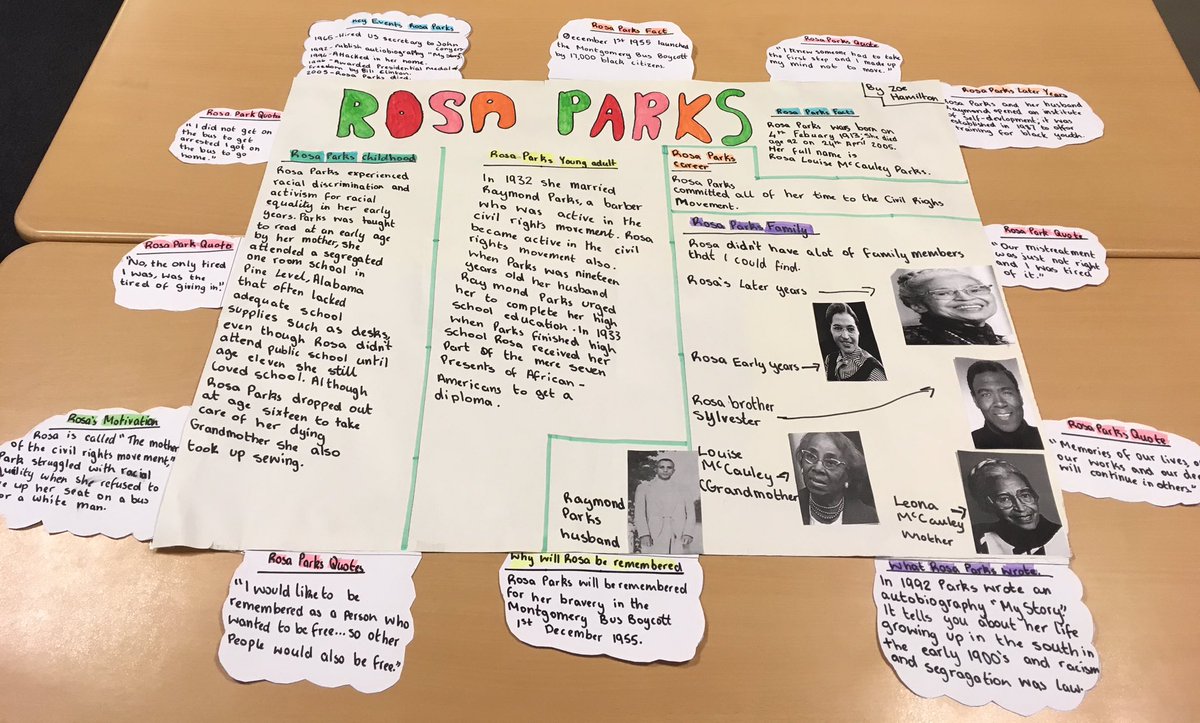 Key Events Rosa Parks
1965-Hired US secretary to John
Conyers
1992-Publish autobiography "My Story
1994-Attacked in her home.
1996-Awarded Presidential medal of
freedom by Bill Clinton.
2005-Rosa Parks died.
Rosa Parks Fact
December 1st 1955 launched
the Montgomery Bus Boycott
by 17,000 black citizens.
Rosa Parks Quote
"I knew someone had to take
the first step and I made up
my mind not to move."
Rosa Parks Later Years
Rosa Parks and her husband
Raymond opened an institute
of self-devlopment, it was
established in 1987 to offer
training for black youth.
Rosa Park Quote
"I did not get on
the bus to get
arrested I got on
the bus to go
home."
ROSA PARKS
By Zoe
Hamilton
Rosa Parks Facts
Rosa Parks was born on
4th Febuary 1913, she died
age 92 on 24th April 2005.
Her full name is
Rosa Louise McCauley Parks.
Rosa Parks childhood
Rosa Parks experienced
racial discrimination and
activism for racial
equality in her early
years. Parks was taught
to read at an early age
by her mother, she
attended a segregated
one room school in
Pine Level, Alabama
that often lacked
adequate school
supplies such as desks,
even though Rosa didn't
attend public school until
age eleven she still
loved school. Although
Rosa Parks dropped out
at age sixteen to take
care of her dying
Grandmother she also
took up sewing.
Rosa Parks Young adult
In 1932 she married
Raymond Parks, a barber
who was active in the
civil rights movement. Rosa
became active in the civil
rights movement also.
When Parks was nineteen
years old her husband
Raymond Parks urged
her to complete her high
school education. In 1933
when Parks finished high
school Rosa received her
Part of the mere seven
Presents of African-
Americans to get a
diploma.
Rosa Parks
career
Rosa Parks
committed all of her time to the Civil Righs
Movement.
Rosa Parks Family
Rosa didn't have alot of family members
that I could find.
Rosa's Later years
Rosa Early years
Rosa brother
Sylvester
Louise
McCauley
Grandmother
Leona
McCauley
Mother
Raymond
Parks
husband
Rosa Park Quote
"No, the only tired
I was, was the
tired of giving in."
Rosa Park Quote
"Our mistreatment
was just not right
and I was tired
of it."
Rosa's Motivation
Rosa is called "The mother
of the civil rights movement,"
Park struggled with racial
when she refused to
up her seat on a bus
a white man.
Rosa Parks Quote
"Memories of our lives, of
our works and our
will continue in others."
Rosa Parks Quotes
"I would like to be
remembered as a person who
wanted to be free... so other
People would also be free."
Why will Rosa be remembered
Rosa Parks will be remembered
for her bravery in the
Montgomery Bus Boycott
1st December 1955.
What Rosa Parks wrote.
In 1992 Parks wrote an
autobiography "My Story"
It tells you about her life
growing up in the south in
the early 1900's and racism
and segragation was law.